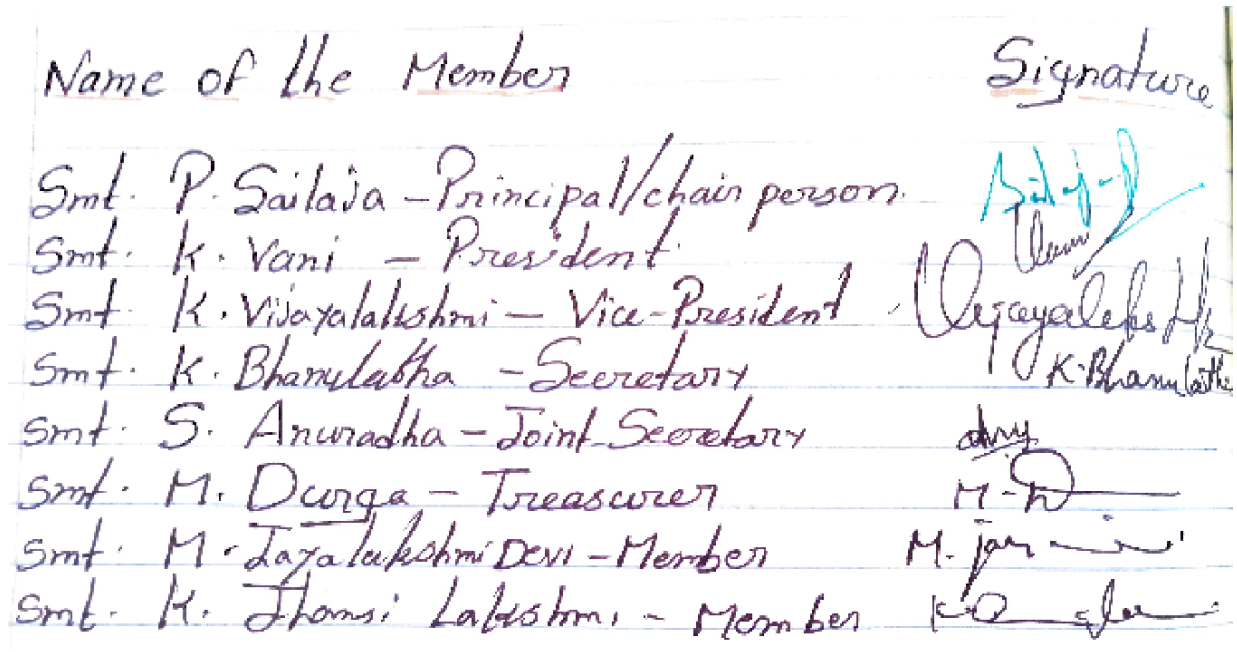 Name of the Member Signature
Smt. P. Sailaja - Principal/chair person.
Smt. K. Vani - President.
Smt. K. Vijayalakshmi - Vice-President Vijayalakshmi
Smt. K. Bhanulatha - Secretary K. Bhanulatha
Smt. S. Anuradha - Joint-Secretary
Smt. M. Durga - Treasurer M. D
Smt. M. Jayalakshmi Devi - Member M.
Smt. K. Jhansi Lakshmi - Member